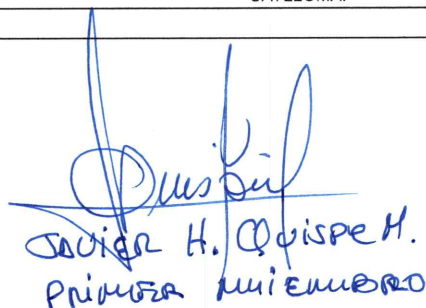 JAVIER H. QUISPE M.
PRIMER MIIEMBRO